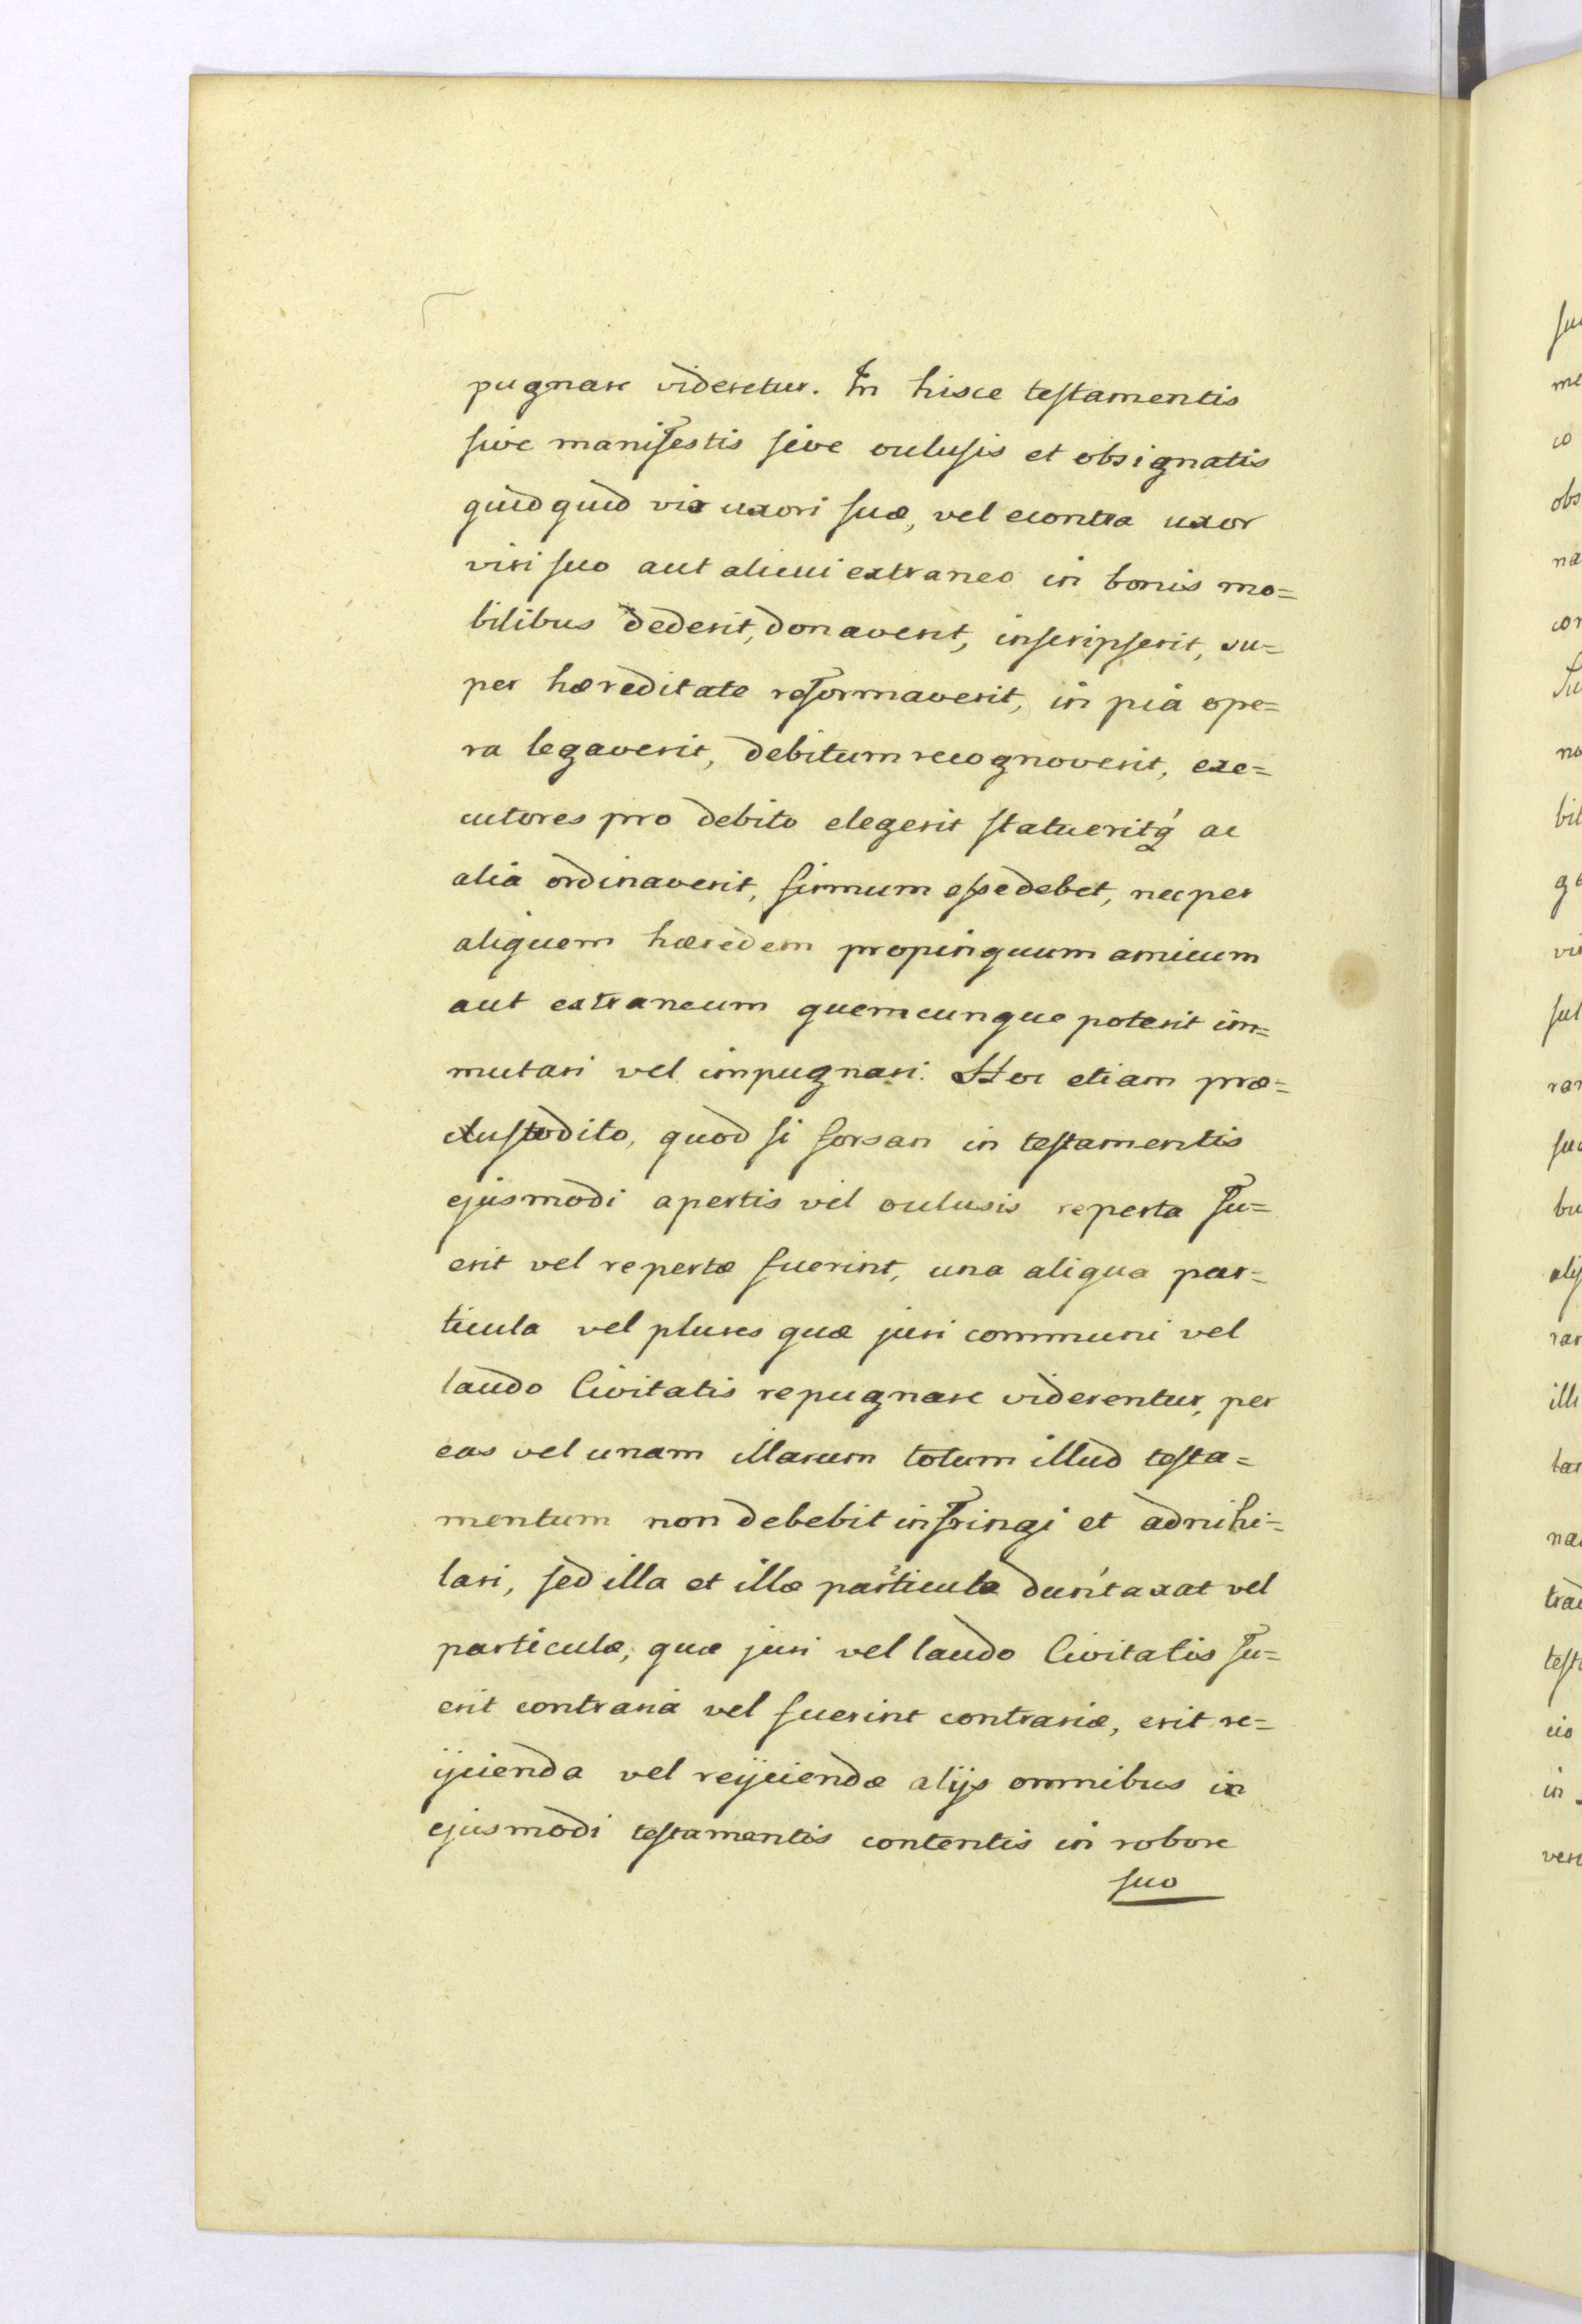 pugnare videretur. In hisce testamentis
sive manifestis sive oclusis et obsignatis
quidquid vir uxori suæ, vel econtra uxor
viri suo aut alicui extraneo in bonis mo=
bilibus dederit, donaverit, inscripserit, su=
per hæreditate reformaverit, in pia ope=
ra legaverit, debitum recognoverit, exe=
cutores pro debito elegerit statueritq́ ac
alia ordinaverit, firmum esse debet, nec per
aliquem hæredem propinquum amicum
aut extraneum quemcunque poterit im=
mutari vel impugnari. Hoc etiam præ=
custodito, quod si forsan in testamentis
ejusmodi apertis vel oclusis reperta fu=
erit vel repertæ fuerint, una aliqua par=
ticula vel plures quæ juri communi vel
laudo Civitatis repugnare viderentur, per
eas vel unam illarum totum illud testa=
mentum non debebit infringi et adnihi=
lari, sed illa et illæ particula duntaxat vel
particulæ, quæ juri vel laudo Civitatis fu=
erit contraria vel fuerint contrariæ, erit re=
ijcienda vel reijciendæ alijs omnibus in
ejusmodi testamentis contentis in robore
suo